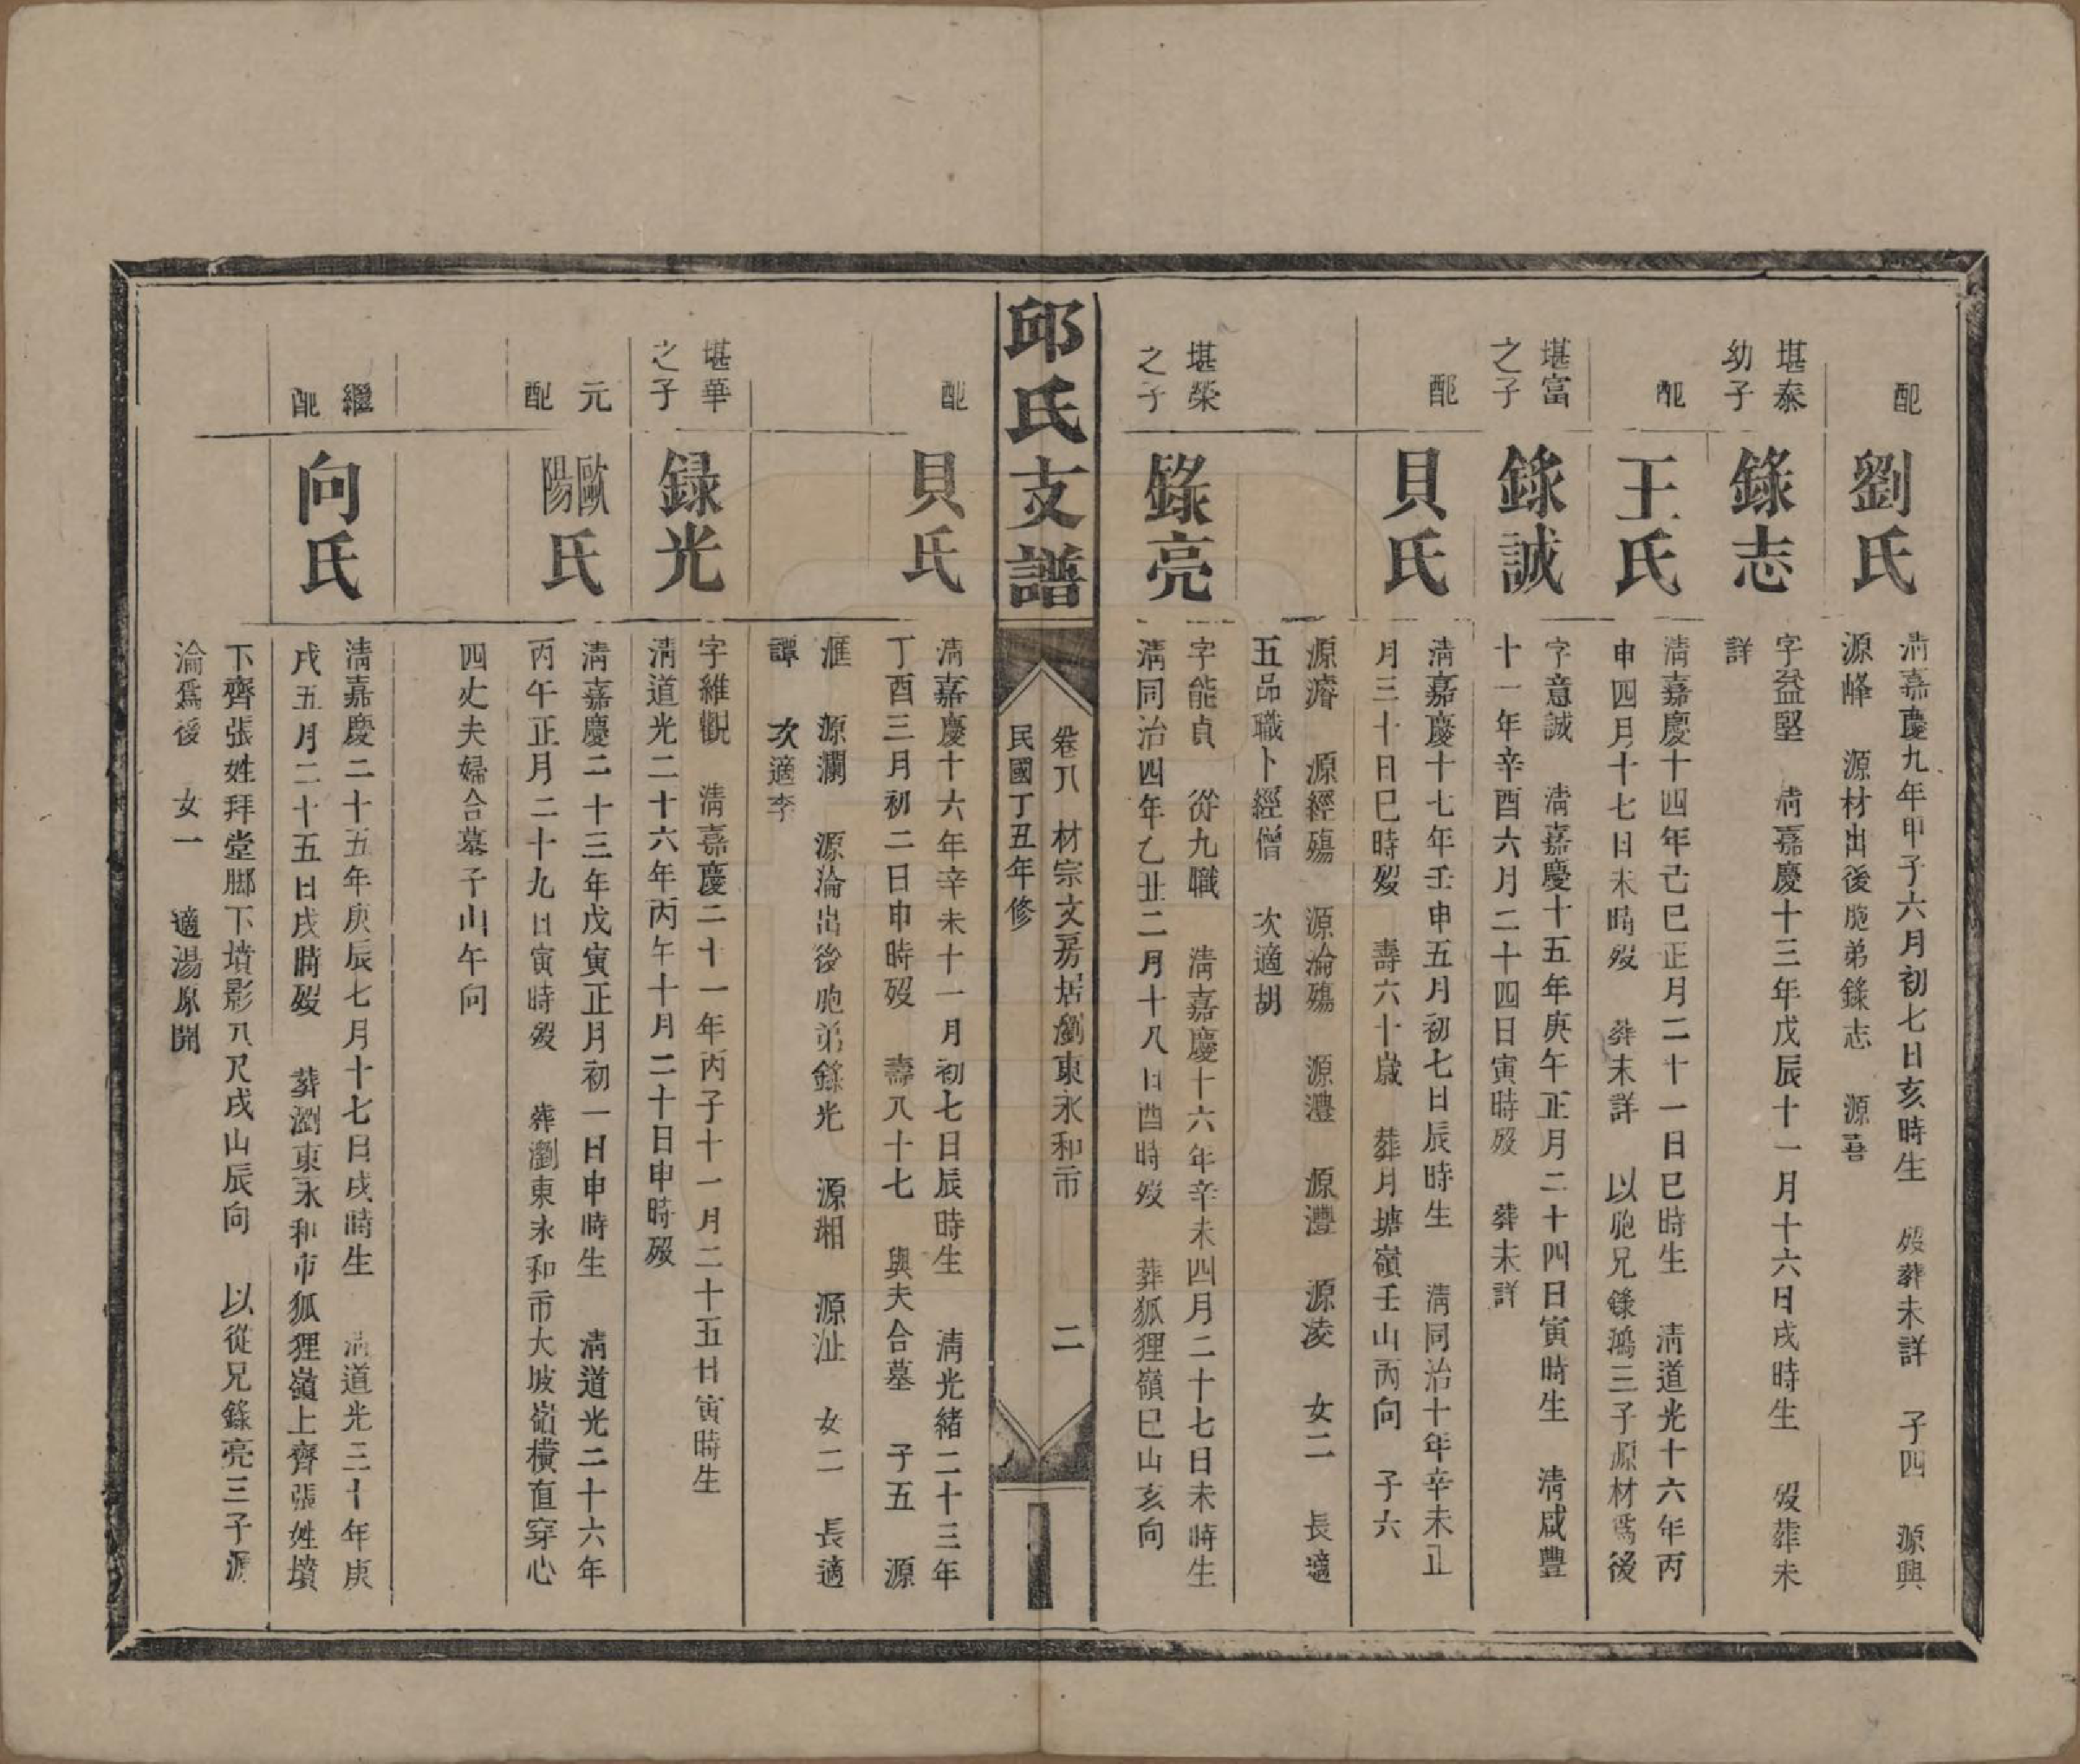 配
劉氏
清嘉慶九年甲子六月初七日亥時生　歿葬未詳　子四　源興
源峰　源材出後胞弟錄志　源喜
堪泰
幼子
錄志
字益堅　清嘉慶十三年戊辰十一月十六日戌時生　歿葬未
詳
配
王氏
清嘉慶十四年己巳正月二十一日巳時生　清道光十六年丙
申四月十七日未時歿　葬未詳　以胞兄錄鴻三子源材爲後
堪富
之子
錄誠
字意誠　清嘉慶十五年庚午正月二十四日寅時生　清咸豐
十一年辛酉六月二十四日寅時歿　葬未詳
配
貝氏
清嘉慶十七年壬申五月初七日辰時生　清同治十年辛未正
月三十日巳時歿　壽六十歲　葬月塘嶺壬山丙向　子六
源濬　源經殤　源淪殤　源灃　源灃　源淩　女二　長適
五品職卜經僧　次適胡
堪榮
之子
錄亮
字能貞　從九職　清嘉慶十六年辛未四月二十七日未時生
清同治四年乙丑二月十八日酉時歿　葬狐狸嶺巳山亥向
邱氏支譜
卷八　材宗文房居瀏東永和市　二
民國丁丑年修
配
貝氏
清嘉慶十六年辛未十一月初七日辰時生　清光緒二十三年
丁酉三月初二日申時歿　壽八十七　與夫合墓　子五　源
滙　源瀾　源淪出後胞弟錄光　源湘　源沚　女二　長適
譚　次適李
堪華
之子
録光
字維觀　清嘉慶二十一年丙子十一月二十五日寅時生
清道光二十六年丙午十月二十日申時歿
元
配
歐陽氏
清嘉慶二十三年戊寅正月初一日申時生　清道光二十六年
丙午正月二十九日寅時歿　葬瀏東永和市大坡嵓橫直穿心
四丈夫婦合墓子山午向
繼
配
向氏
清嘉慶二十五年庚辰七月十七日戌時生　清道光三十年庚
戌五月二十五日戌時歿　葬瀏東永和市狐狸嶺上齊張姓墳
下齊張姓拜堂腳下墳影八尺戌山辰向　以從兄錄亮三子源
淪爲後　女一　適湯原開